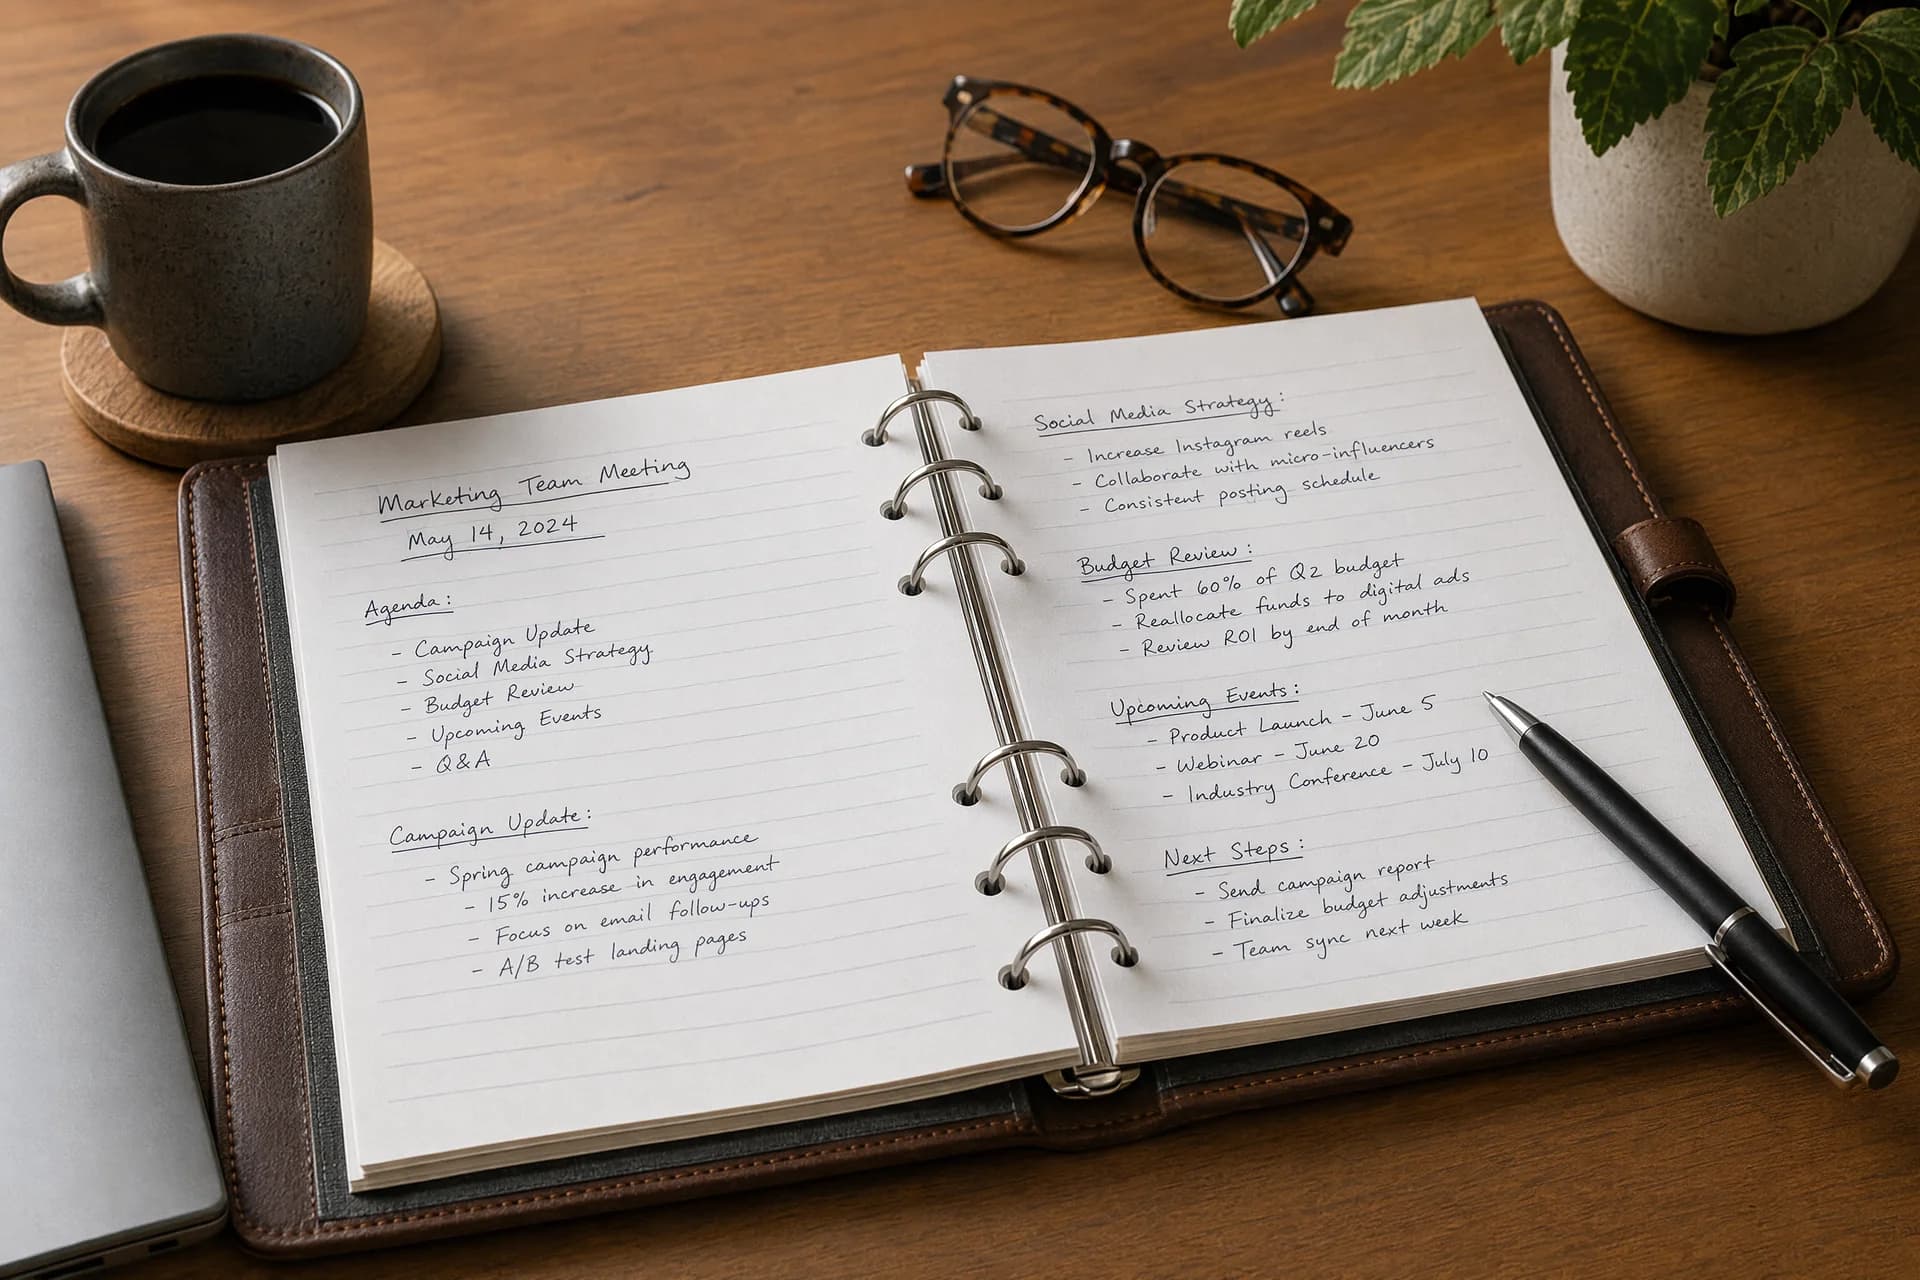 Marketing Team Meeting
May 14, 2024
Agenda:
- Campaign Update
- Social Media Strategy
- Budget Review
- Upcoming Events
- Q&A
Campaign Update:
- Spring campaign performance
- 15% increase in engagement
- Focus on email follow-ups
- A/B test landing pages
Social Media Strategy:
- Increase Instagram reels
- Collaborate with micro-influencers
- Consistent posting schedule
Budget Review:
- Spent 60% of Q2 budget
- Reallocate funds to digital ads
- Review ROI by end of month
Upcoming Events:
- Product Launch - June 5
- Webinar - June 20
- Industry Conference - July 10
Next Steps:
- Send campaign report
- Finalize budget adjustments
- Team sync next week